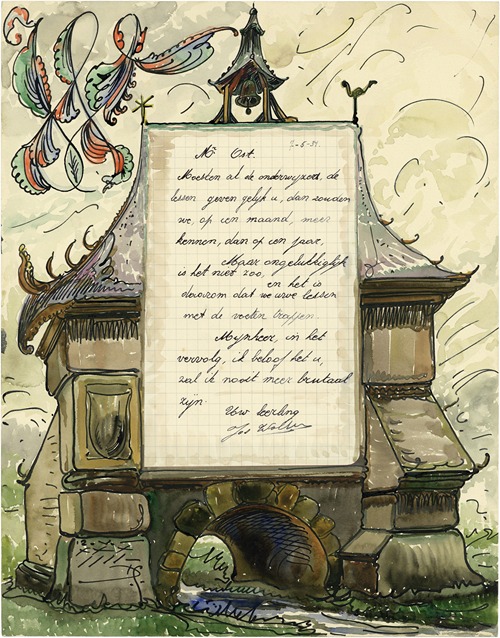 7-5-51.
Mr Ost.
Moesten al de onderwijzers, de
lessen geven gelijk u, dan zouden
we, op een maand, meer
kennen, dan op een jaar,
Maar ongelukkiglijk
is het niet zoo, en het is
daarom dat we uwe lessen
met de voeten trappen.
Mijnheer, in het
vervolg, ik beloof het u,
zal ik nooit meer brutaal
zijn.
Uw leerling
Jos